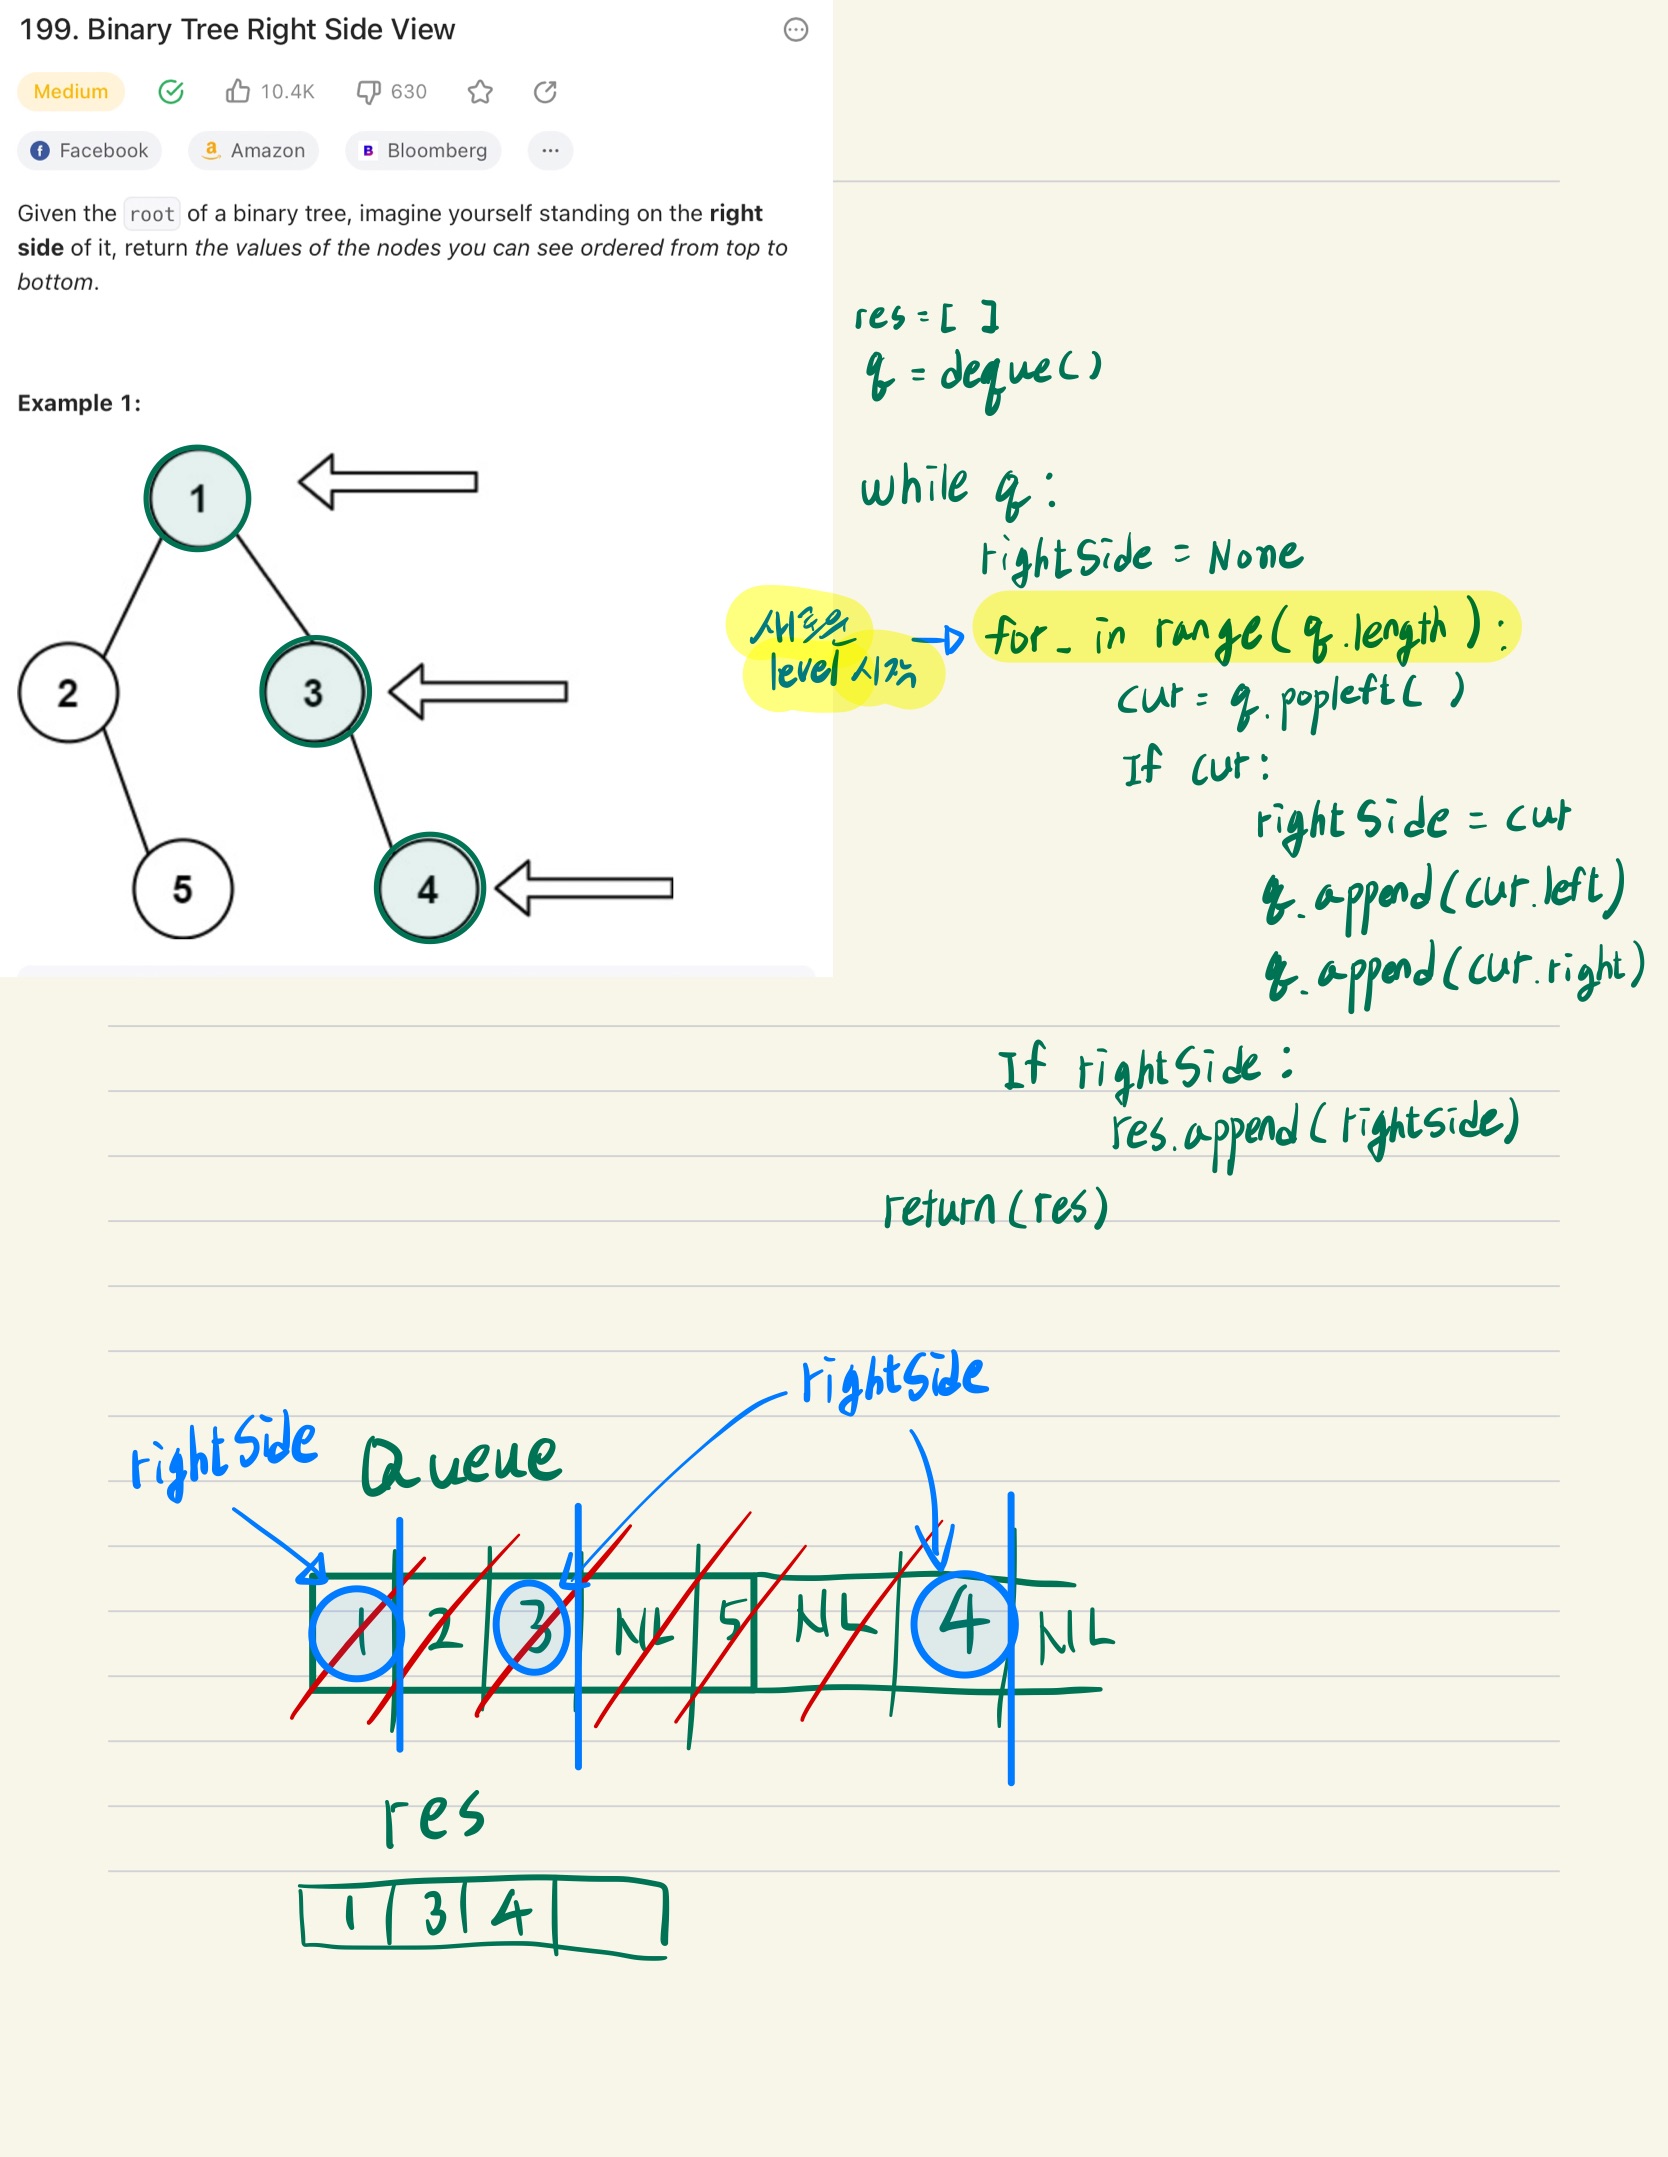 199. Binary Tree Right Side View
Medium 10.4K 630
Facebook Amazon Bloomberg ...
Given the root of a binary tree, imagine yourself standing on the right
side of it, return the values of the nodes you can see ordered from top to
bottom.
Example 1:
1
2 3
5 4
res = [ ]
q = deque()
while q:
rightSide = None
새로운
level 시작
for _ in range(q.length):
cur = q.popleft( )
If cur:
rightSide = cur
q.append(cur.left)
q.append(cur.right)
If rightSide:
res.append(rightSide)
return(res)
rightSide
rightSide Queue
1 2 3 NL 5 NL 4 NL
res
1 3 4